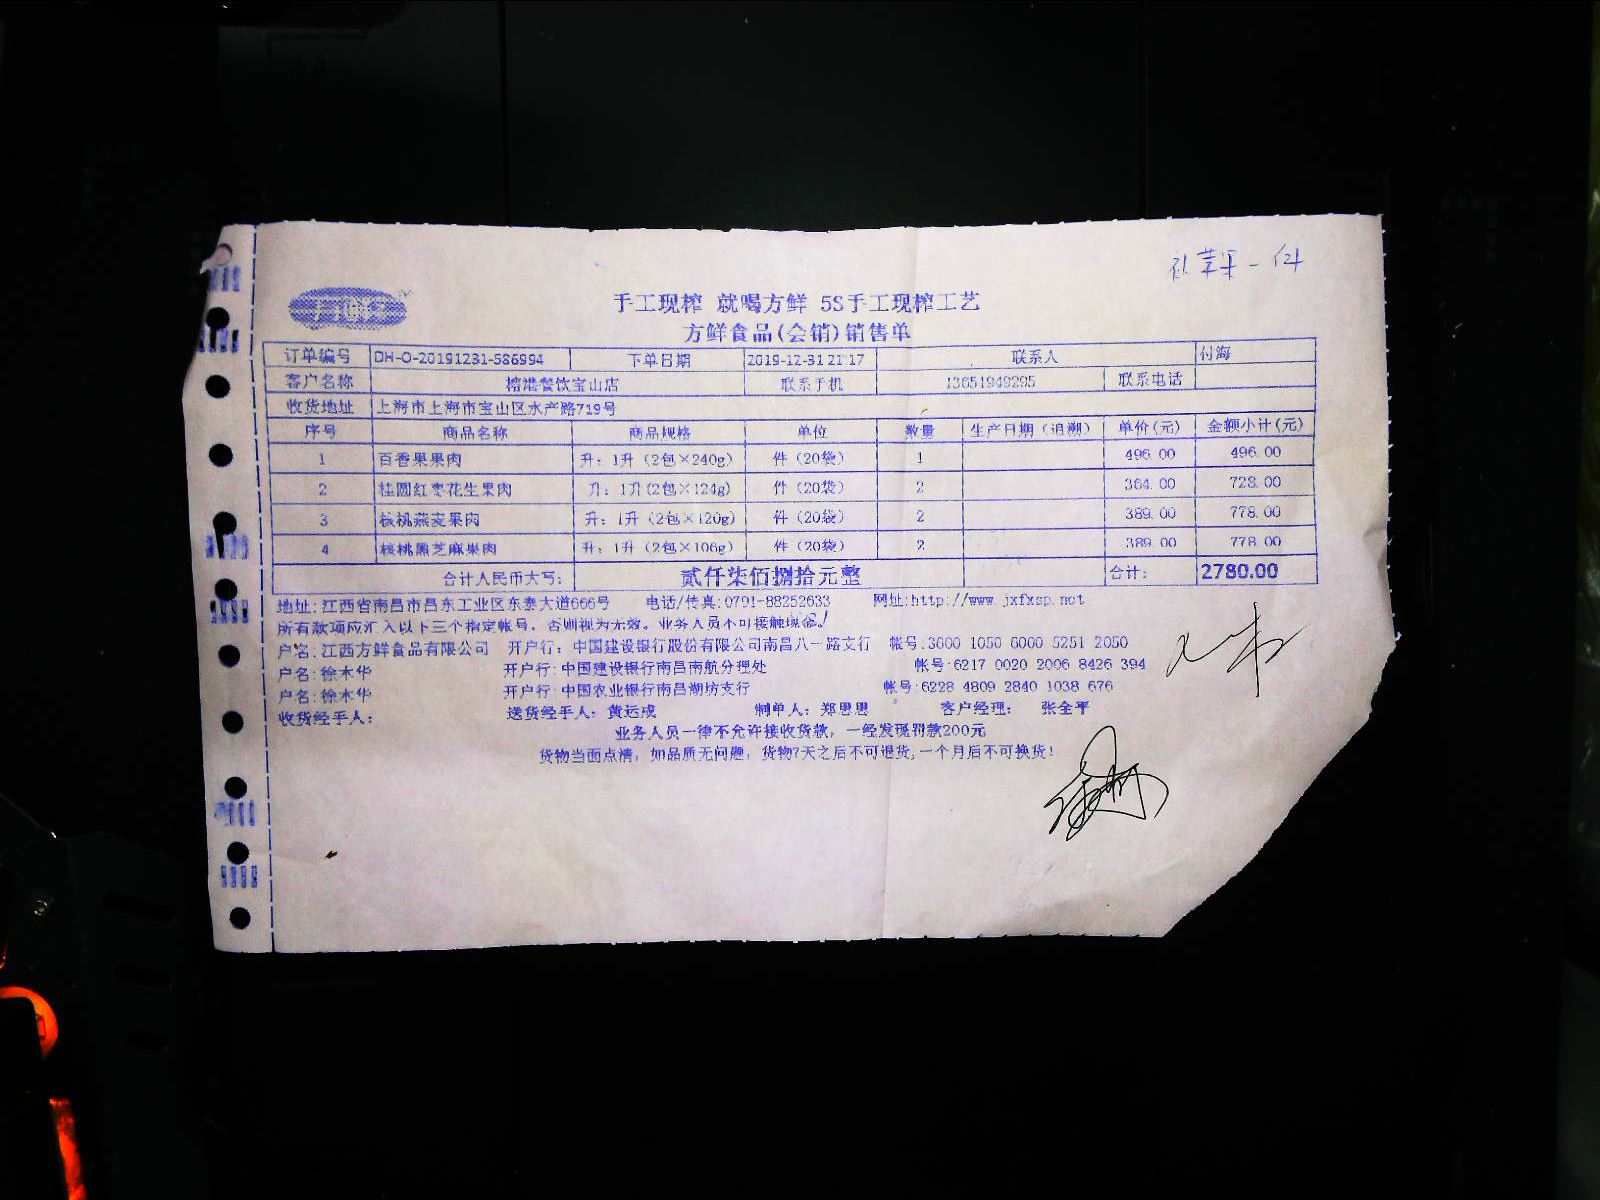 手工现榨 就喝方鲜 5S手工现榨工艺
方鲜食品(会销)销售单
订单编号 DH-O-20191231-586994 下单日期 2019-12-31 21:17 联系人 付海
客户名称 榕港餐饮宝山店 联系手机 13651949295 联系电话
收货地址 上海市上海市宝山区水产路719号
序号 商品名称 商品规格 单位 数量 生产日期（追溯） 单价(元) 金额小计(元)
1 百香果果肉 升：1升（2包×240g） 件（20袋） 1 496.00 496.00
2 桂圆红枣花生果肉 升：1升(2包×124g) 件（20袋） 2 364.00 728.00
3 核桃燕麦果肉 升：1升（2包×120g） 件（20袋） 2 389.00 778.00
4 核桃黑芝麻果肉 升：1升（2包×106g） 件（20袋） 2 389.00 778.00
合计人民币大写： 贰仟柒佰捌拾元整 合计： 2780.00
地址：江西省南昌市昌东工业区东泰大道666号 电话/传真:0791-88252633 网址:http://www.jxfxsp.net
所有款项应汇入以下三个指定帐号，否则视为无效。业务人员不可接触现金！
户名：江西方鲜食品有限公司 开户行：中国建设银行股份有限公司南昌八一路支行 帐号:3600 1050 6000 5251 2050
户名：徐木华 开户行：中国建设银行南昌南航分理处 帐号:6217 0020 2006 8426 394
户名：徐木华 开户行：中国农业银行南昌湖坊支行 帐号:6228 4809 2840 1038 676
收货经手人： 送货经手人：黄运成 制单人：郑思思 客户经理： 张全平
业务人员一律不允许接收货款，一经发现罚款200元
货物当面点清，如品质无问题，货物7天之后不可退货,一个月后不可换货！